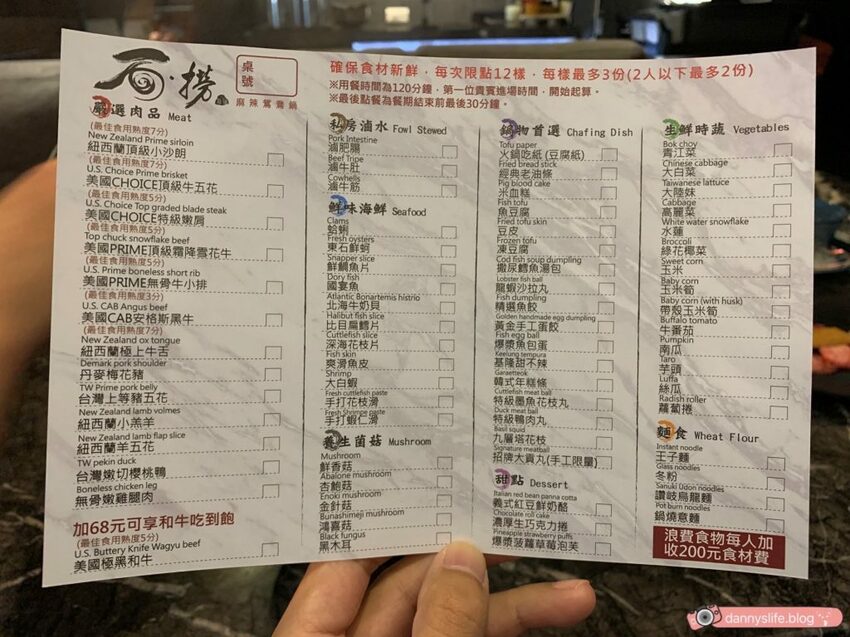 石·撈
麻辣鴛鴦鍋
桌號
確保食材新鮮，每次限點12樣，每樣最多3份(2人以下最多2份)
※用餐時間為120分鐘，第一位貴賓進場時間，開始起算。
※最後點餐為餐期結束前最後30分鐘。
嚴選肉品 Meat
(最佳食用熟度7分)
New Zealand Prime sirloin
紐西蘭頂級小沙朗
(最佳食用熟度7分)
U.S. Choice Prime brisket
美國CHOICE頂級牛五花
(最佳食用熟度5分)
U.S. Choice Top graded blade steak
美國CHOICE特級嫩肩
(最佳食用熟度5分)
Top chuck snowflake beef
美國PRIME頂級霜降雪花牛
(最佳食用熟度5分)
U.S. Prime boneless short rib
美國PRIME無骨牛小排
(最佳食用熟度3分)
U.S. CAB Angus beef
美國CAB安格斯黑牛
(最佳食用熟度7分)
New Zealand ox tongue
紐西蘭極上牛舌
Demark pork shoulder
丹麥梅花豬
TW Prime pork belly
台灣上等豬五花
New Zealand lamb volmes
紐西蘭小羔羊
New Zealand lamb flap slice
紐西蘭羊五花
TW pekin duck
台灣嫩切櫻桃鴨
Boneless chicken leg
無骨嫩雞腿肉
加68元可享和牛吃到飽
(最佳食用熟度5分)
U.S. Buttery Knife Wagyu beef
美國極黑和牛
私房滷水 Fowl Stewed
Pork Intestine
滷肥腸
Beef Tripe
滷牛肚
Cowhells
滷牛筋
鮮味海鮮 Seafood
Clams
蛤蜊
Fresh oysters
東石鮮蚵
Snapper slice
鮮鯛魚片
Dory fish
國宴魚
Atlantic Bonartemis histrio
北海牛奶貝
Halibut fish slice
比目扁鱈片
Cuttlefish slice
深海花枝片
Fish skin
爽滑魚皮
Shrimp
大白蝦
Fresh cuttlefish paste
手打花枝滑
Fresh Shrimpe paste
手打蝦仁滑
養生菌菇 Mushroom
Mushroom
鮮香菇
Abalone mushroom
杏鮑菇
Enoki mushroom
金針菇
Bunashimeji mushroom
鴻喜菇
Black fungus
黑木耳
鍋物首選 Chafing Dish
Tofu paper
火鍋吃紙 (豆腐紙)
Fried bread stick
經典老油條
Pig blood cake
米血糕
Fish tofu
魚豆腐
Fried tofu skin
豆皮
Frozen tofu
凍豆腐
Cod fish soup dumpling
撒尿鱈魚湯包
Lobster fish ball
龍蝦沙拉丸
Fish dumpling
精選魚餃
Golden handmade egg dumpling
黃金手工蛋餃
Fish egg ball
爆漿魚包蛋
Keelung tempura
基隆甜不辣
Garaetteok
韓式年糕條
Cuttlefish meat ball
特級墨魚花枝丸
Duck meat ball
特級鴨肉丸
Basil squid
九層塔花枝
Signature meatball
招牌大貢丸(手工限量)
甜點 Dessert
Italian red bean panna cotta
義式紅豆鮮奶酪
Chocolate roll cake
濃厚生巧克力捲
Pineapple strawberry puffs
爆漿菠蘿草莓泡芙
生鮮時蔬 Vegetables
Bok choy
青江菜
Chinese cabbage
大白菜
Taiwanese lettuce
大陸妹
Cabbage
高麗菜
White water snowflake
水蓮
Broccoli
綠花椰菜
Sweet corn
玉米
Baby corn
玉米筍
Baby corn (with husk)
帶殼玉米筍
Buffalo tomato
牛番茄
Pumpkin
南瓜
Taro
芋頭
Luffa
絲瓜
Radish roller
蘿蔔捲
麵食 Wheat Flour
Instant noodle
王子麵
Glass noodles
冬粉
Sanuki Udon noodles
讚岐烏龍麵
Pot burn noodles
鍋燒意麵
浪費食物每人加
收200元食材費
dannyslife.blog